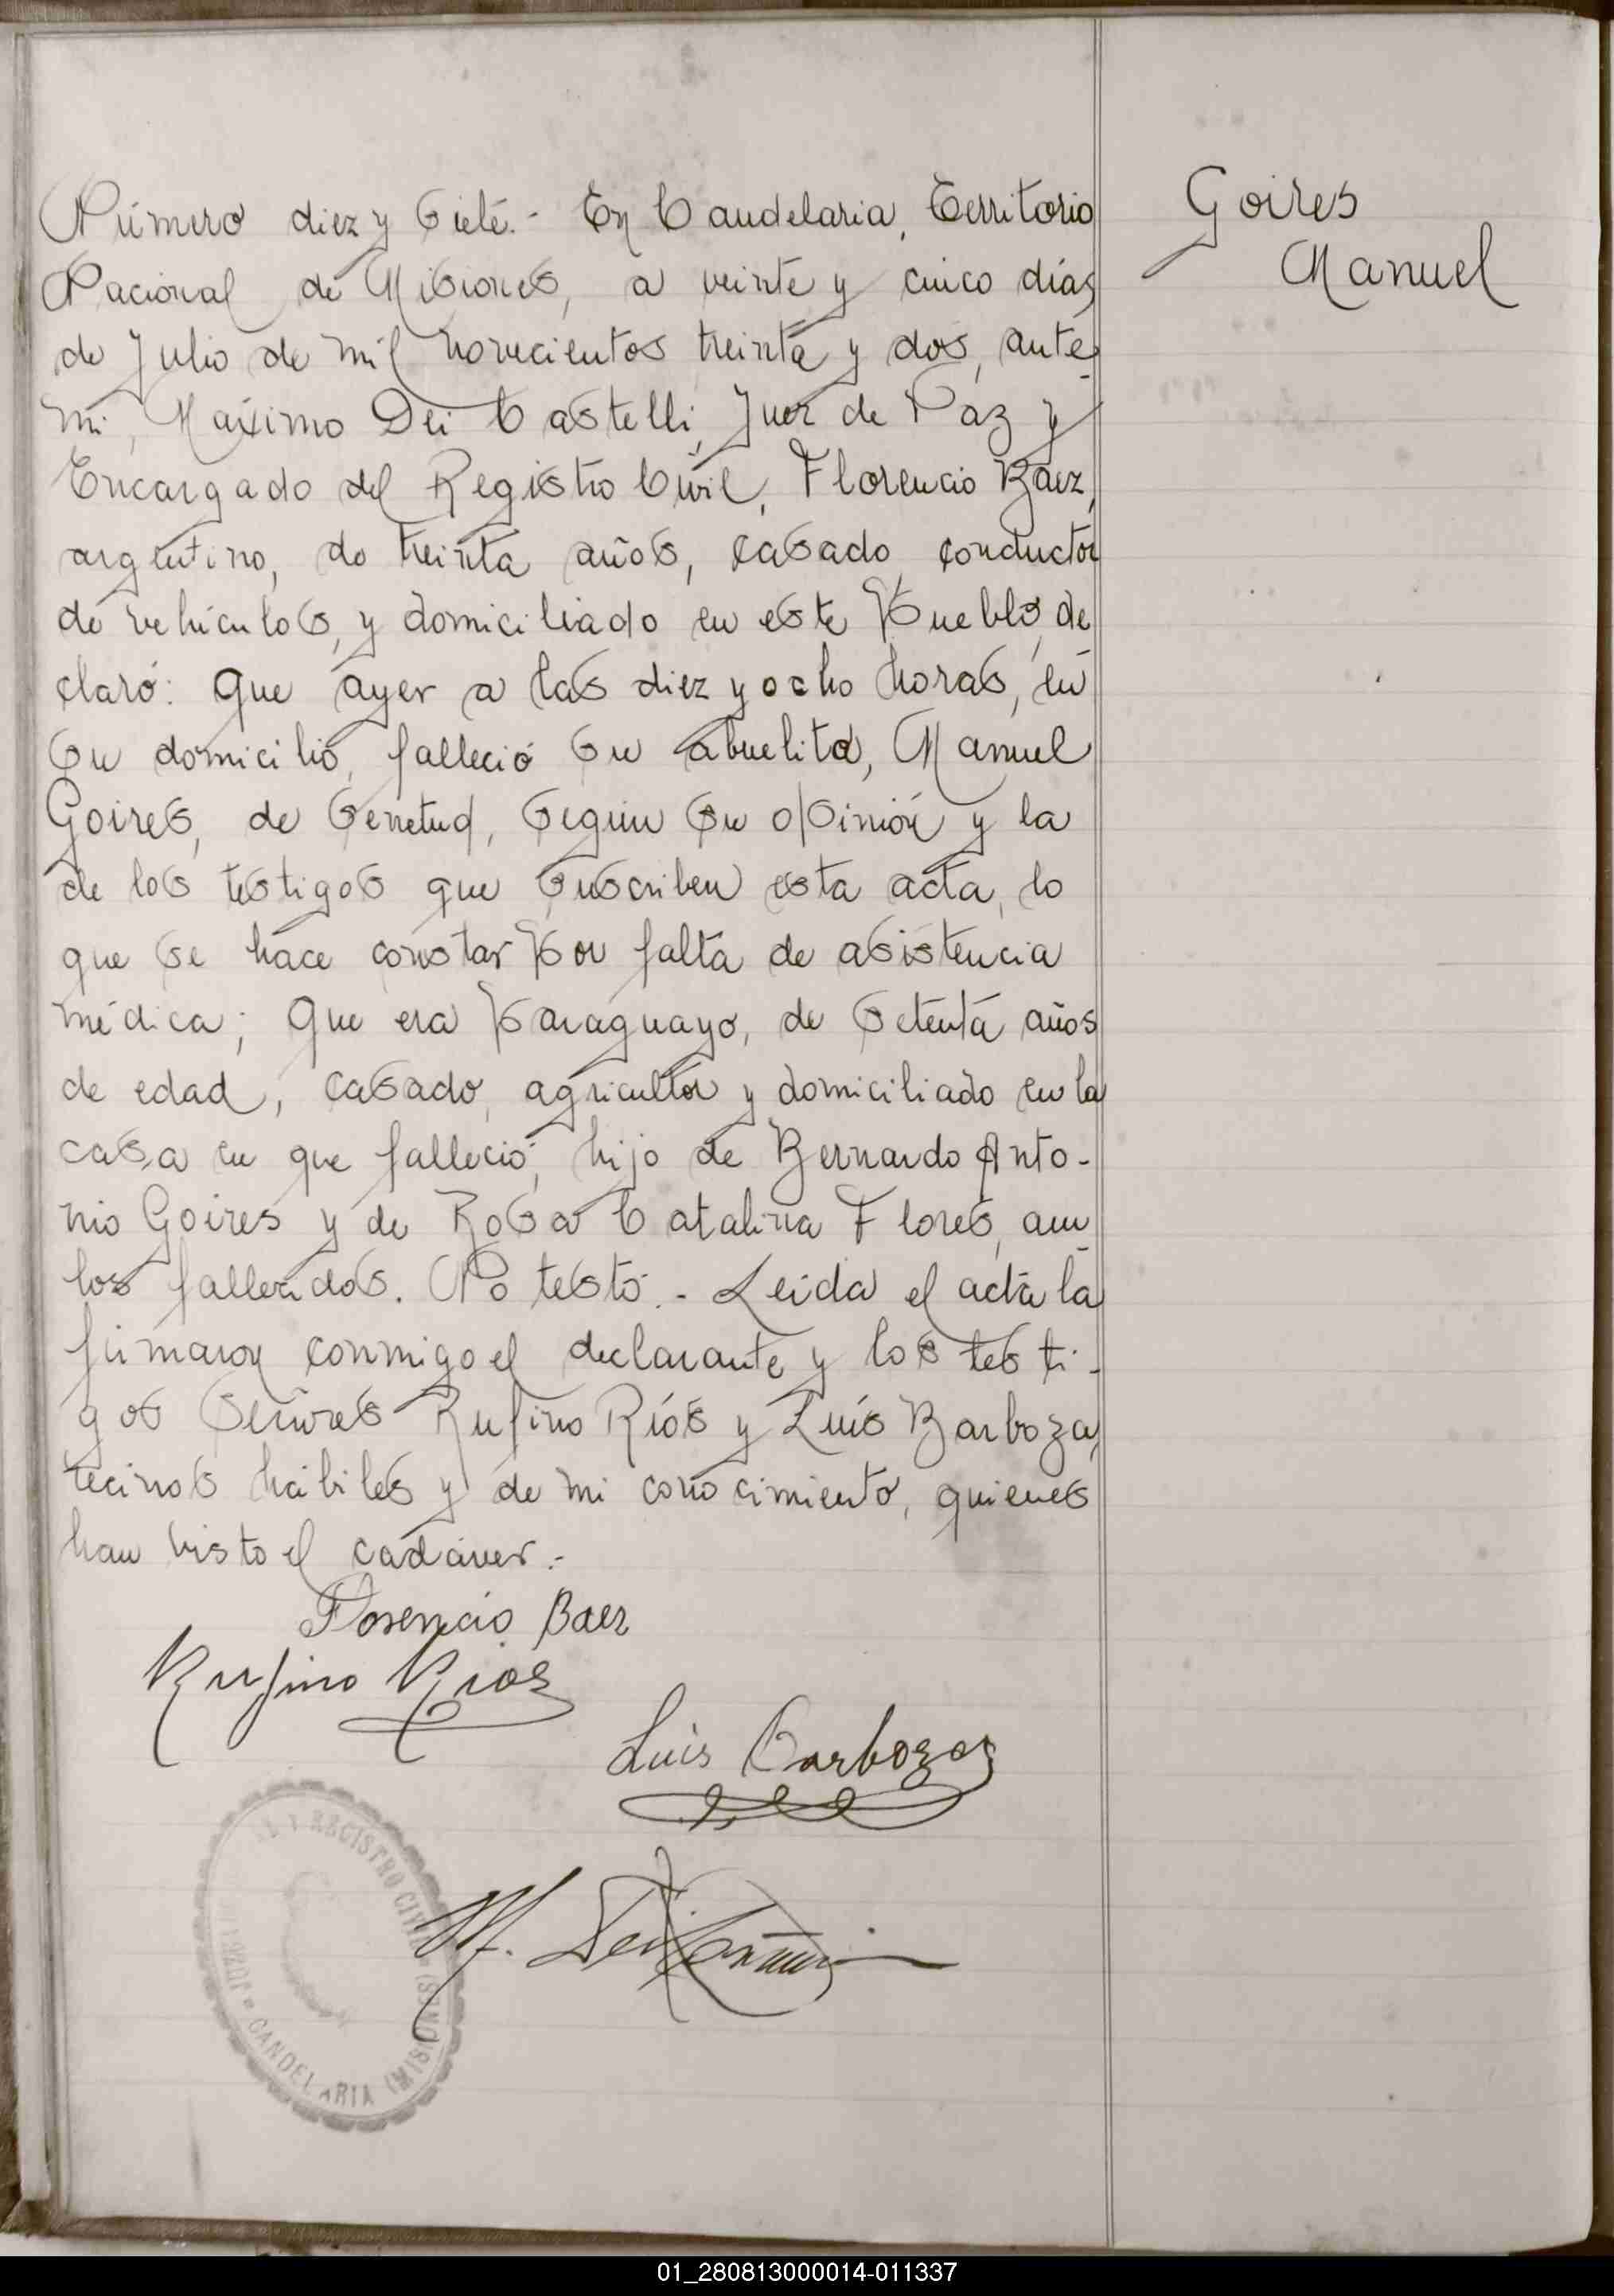 Número diez y siete.- En Candelaria, Territorio
Nacional de Misiones, a veinte y cinco días
de Julio de mil novecientos treinta y dos, ante
mi, Máximo Dei Castelli, Juez de Paz y
Encargado del Registro Civil, Florencio Baez,
argentino, de treinta años, casado, conductor
de vehículos, y domiciliado en este Pueblo, de
claró: Que ayer a las diez y ocho horas, en
su domicilio, falleció su abuelito, Manuel
Goires, de senetud, según su opinión y la
de los testigos que suscriben esta acta, lo
que se hace constar por falta de asistencia
médica; Que era paraguayo, de setenta años
de edad, casado, agricultor y domiciliado en la
casa en que falleció, hijo de Bernardo Anto-
nio Goires y de Rosa Catalina Flores, am
bos fallecidos. No testó.- Leida el acta la
firmaron conmigo el declarante y los testi-
gos Señores Rufino Ríos y Luís Barboza,
vecinos hábiles y de mi conocimiento, quienes
han visto el cadáver.-
Goires
Manuel
Florencio Baez
Rufino Rios
Luis Barboza
M. Dei
REGISTRO CIVIL (MISIONES) CANDELARIA
01_280813000014-011337